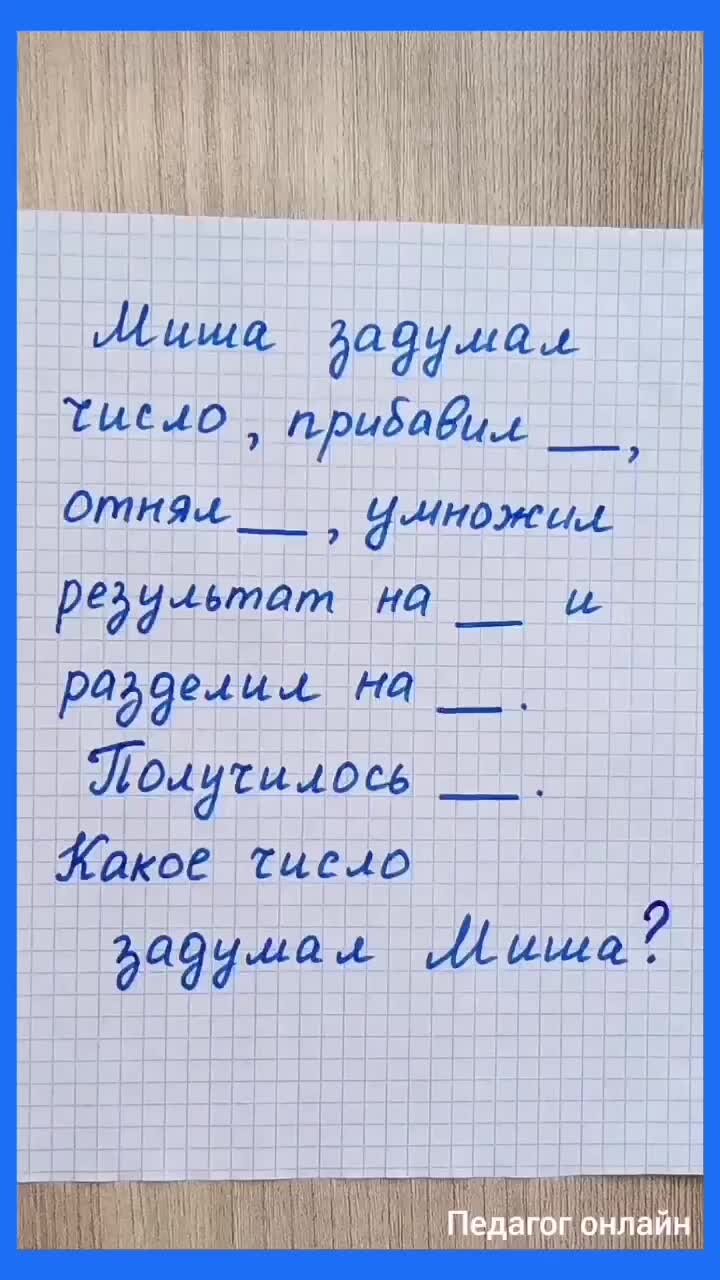 Миша задумал
число, прибавил __,
отнял __, умножил
результат на __ и
разделил на __.
Получилось __.
Какое число
задумал Миша?
Педагог онлайн